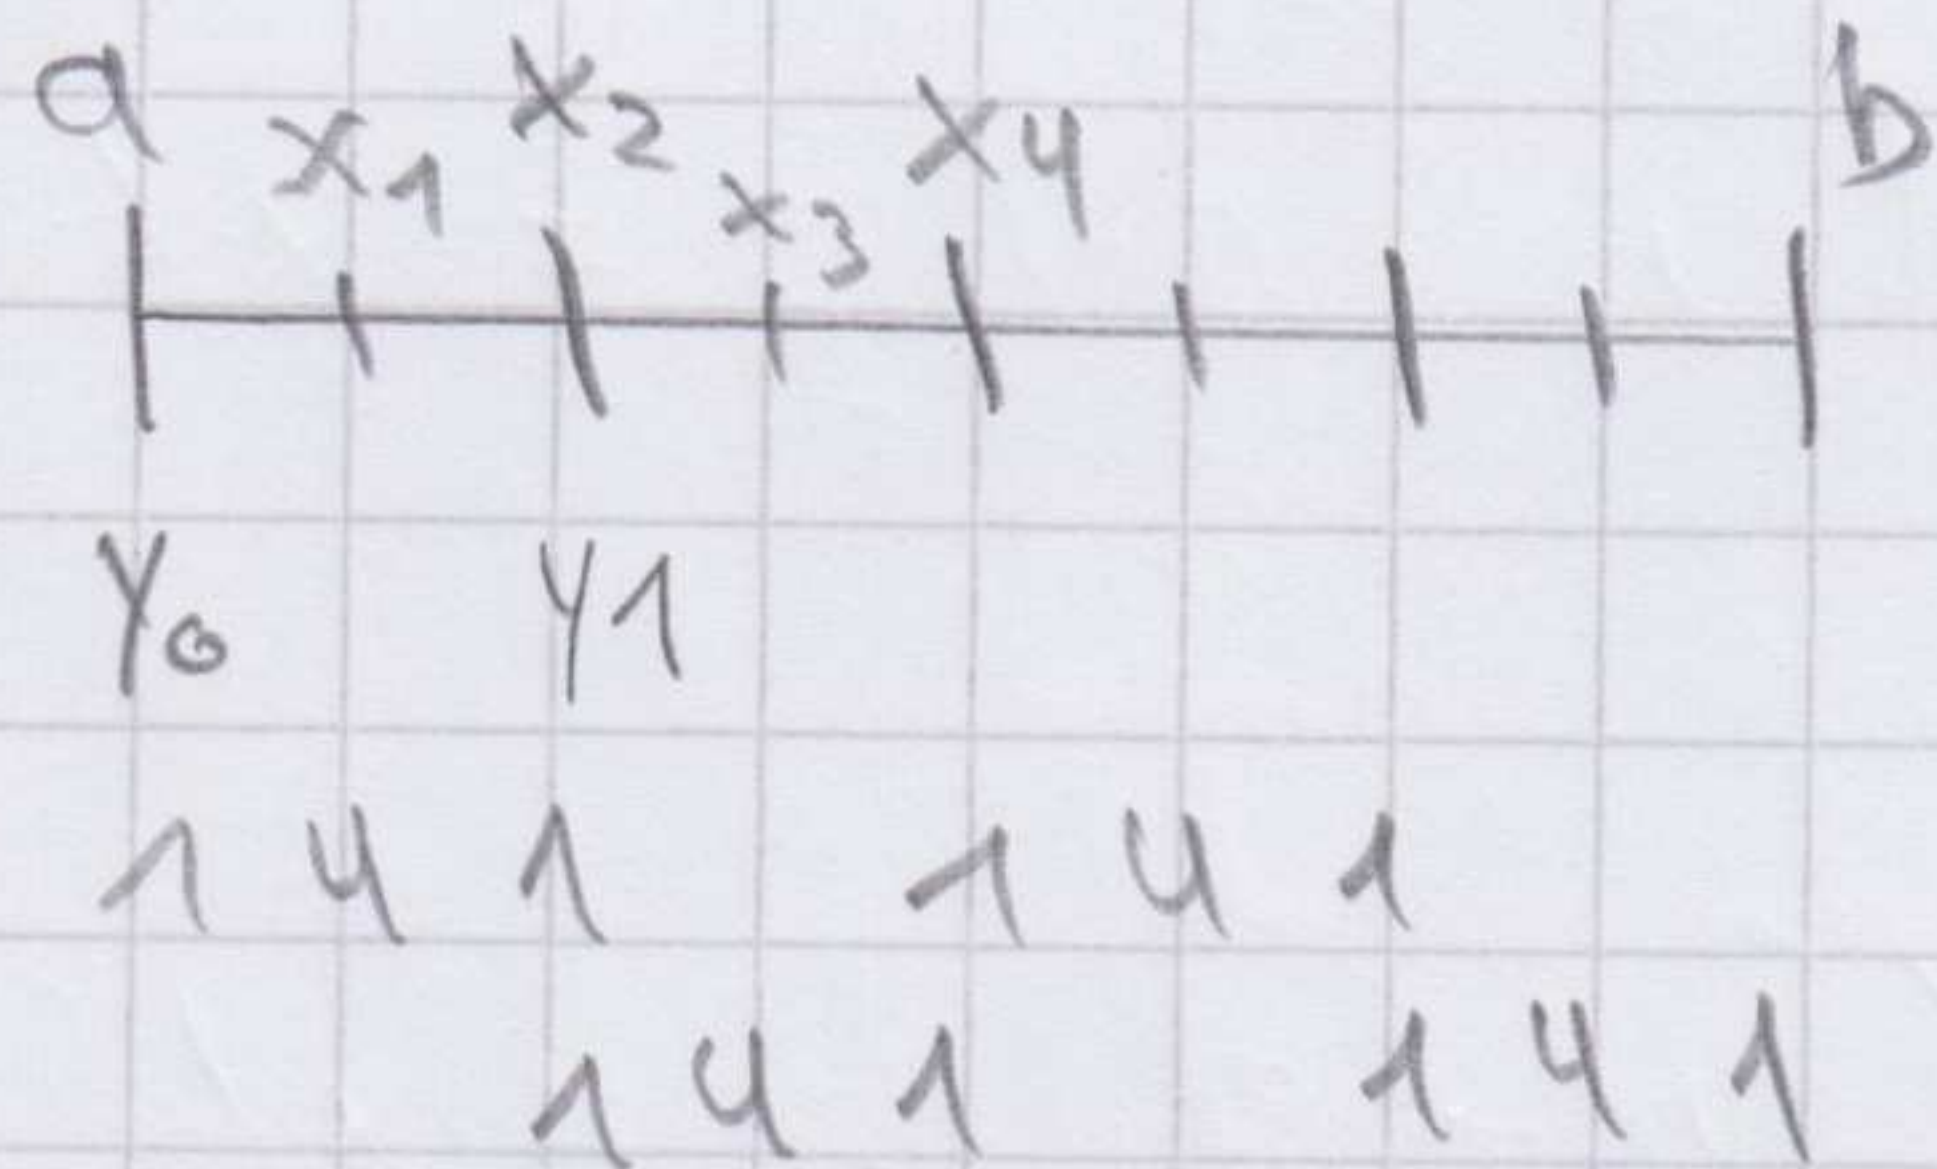 a x1 x2 x3 x4 b
y0 y1
1 4 1 1 4 1
1 4 1 1 4 1